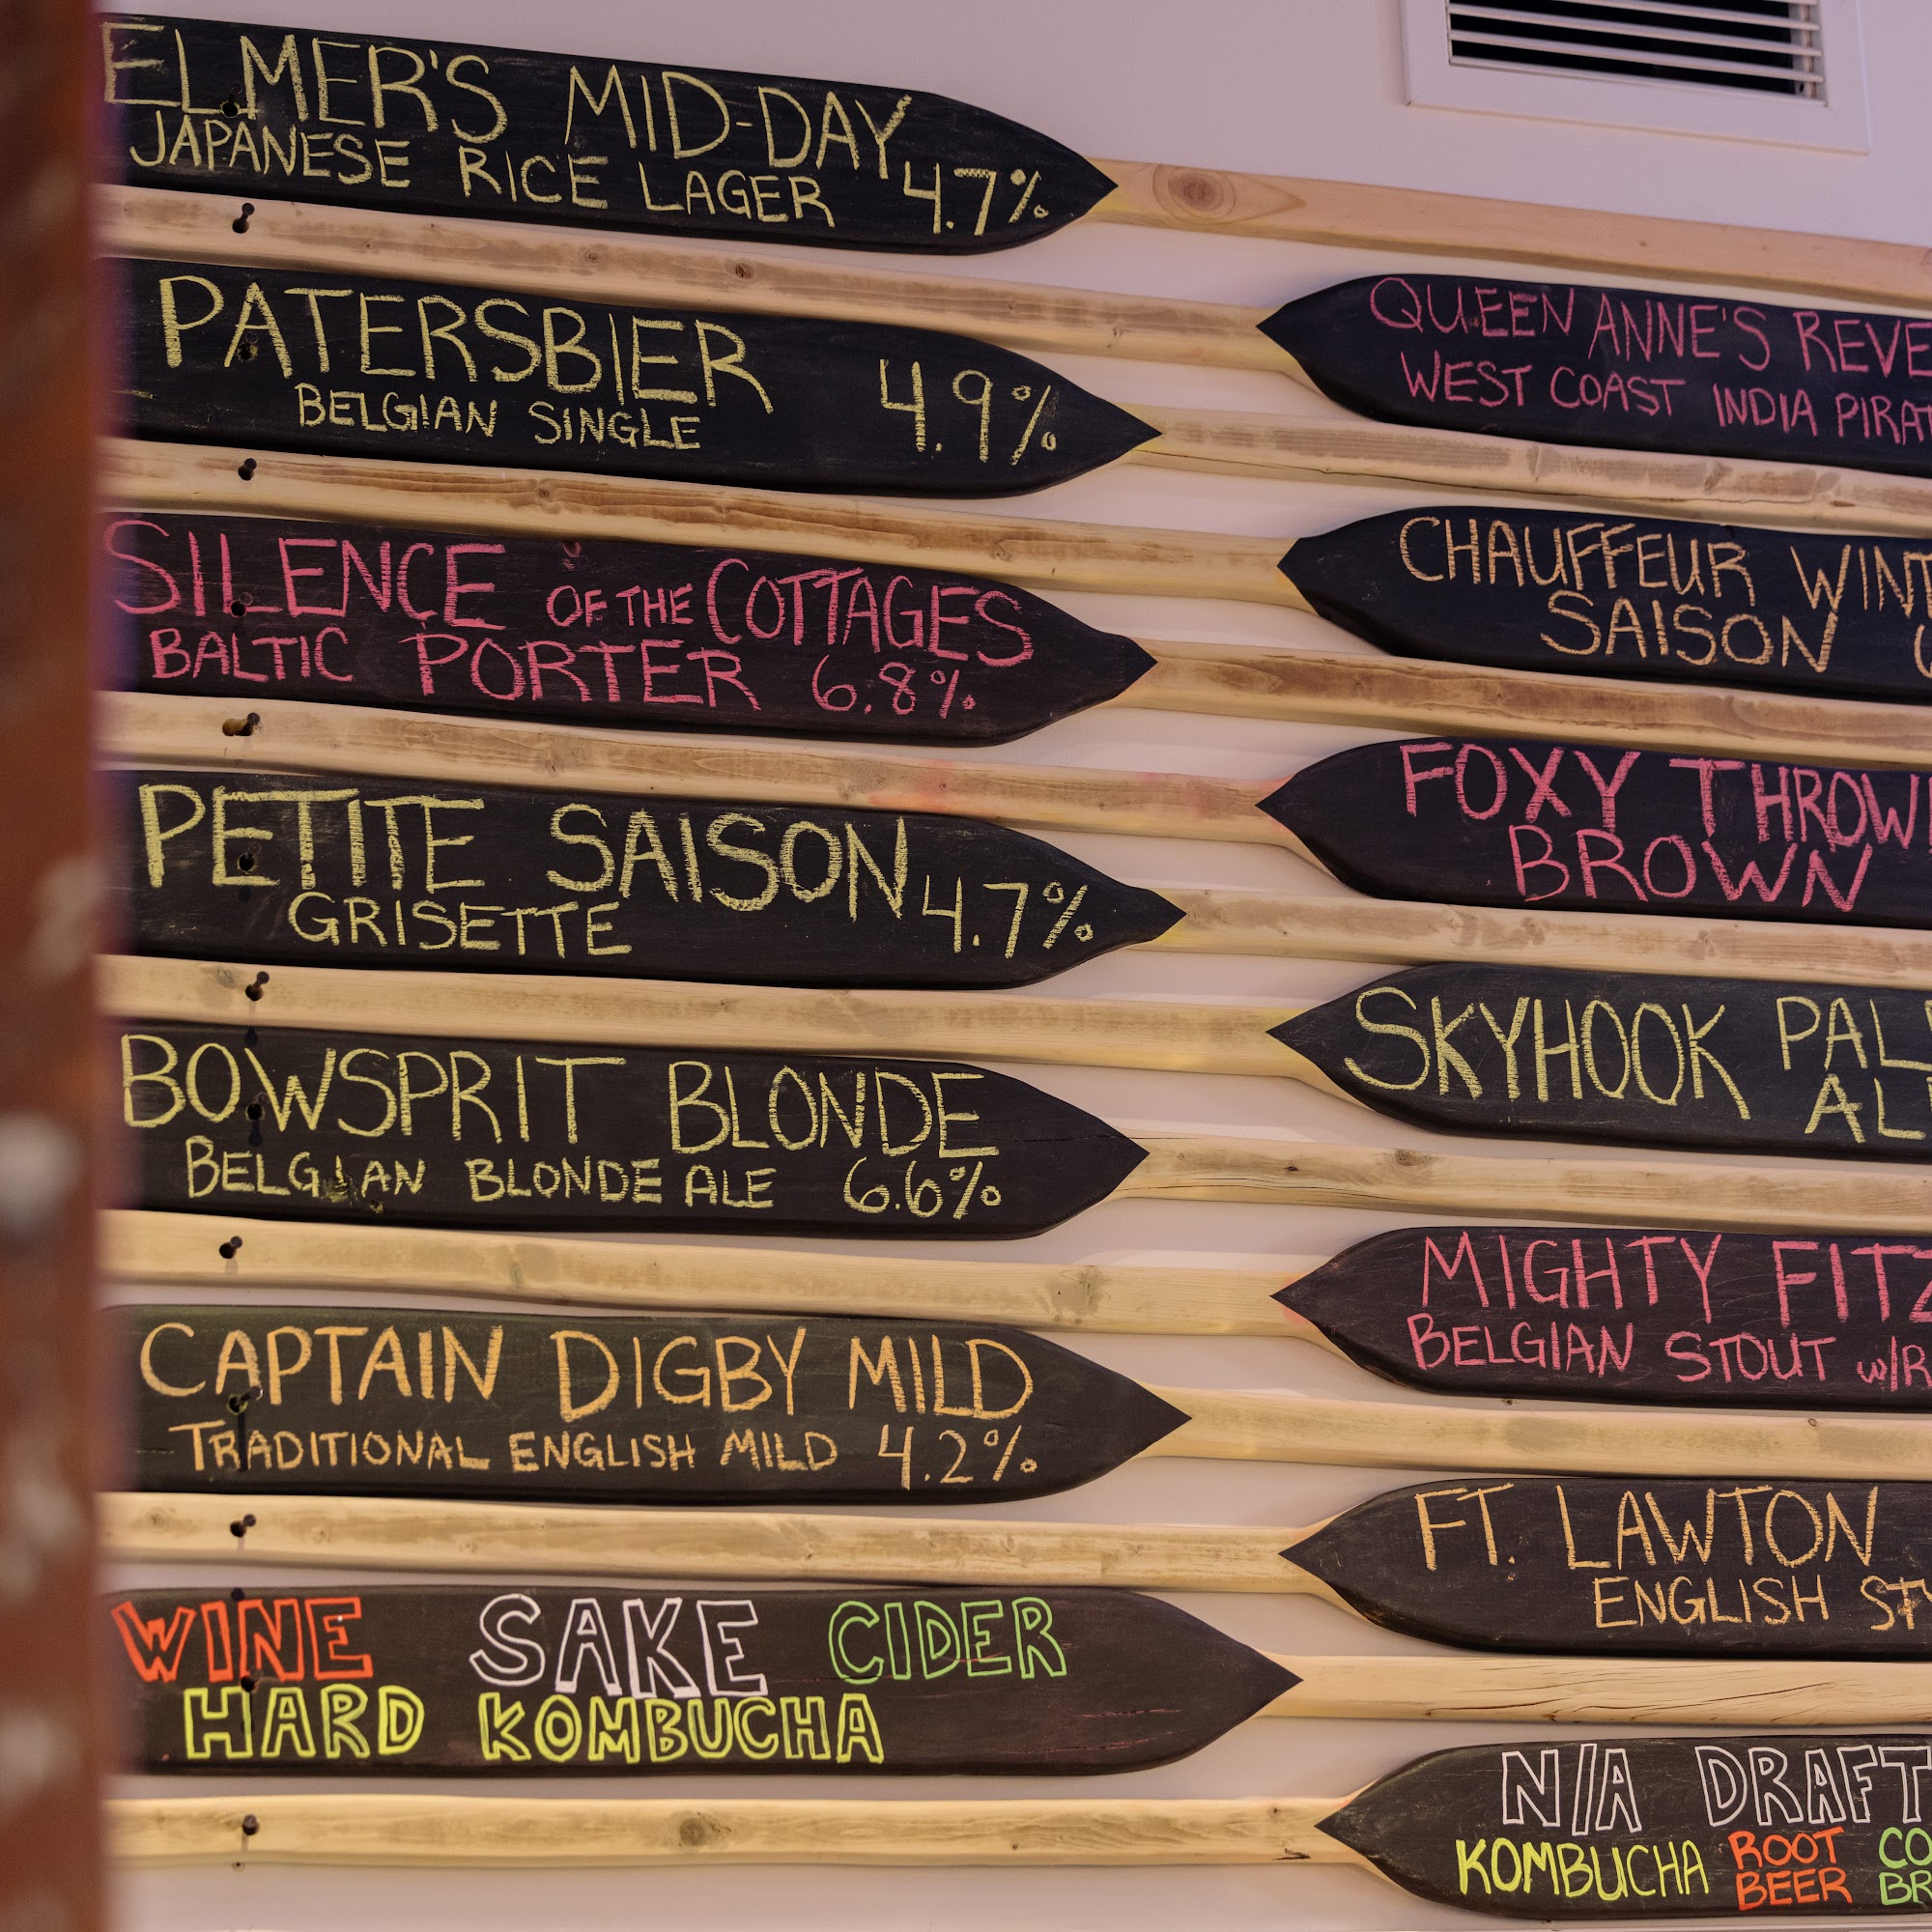 ELMER'S MID-DAY
JAPANESE RICE LAGER 4.7%
PATERSBIER
BELGIAN SINGLE 4.9%
SILENCE OF THE COTTAGES
BALTIC PORTER 6.8%
PETITE SAISON
GRISETTE 4.7%
BOWSPRIT BLONDE
BELGIAN BLONDE ALE 6.6%
CAPTAIN DIGBY MILD
TRADITIONAL ENGLISH MILD 4.2%
WINE SAKE CIDER
HARD KOMBUCHA
QUEEN ANNE'S
WEST COAST INDIA
CHAUFFEUR
SAISON
FOXY
BROWN
SKYHOOK
MIGHTY
BELGIAN STOUT
FT. LAWTON
ENGLISH
N/A DRAFT
KOMBUCHA ROOT
BEER